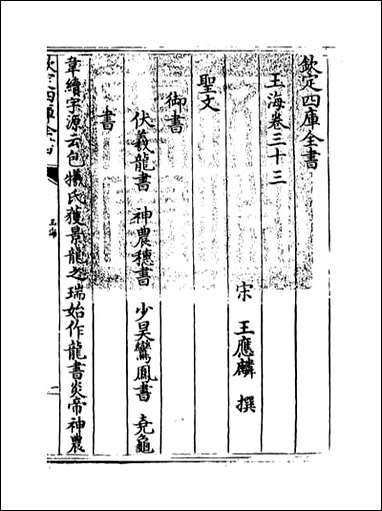 欽定四庫全書
玉海卷三十三
宋 王應麟 撰
聖文
御書
伏羲龍書 神農穗書 少昊鸞鳳書 堯龜
書
韋續字源云包犧氏獲景龍之瑞始作龍書炎帝神農
欽定四庫全書
玉海